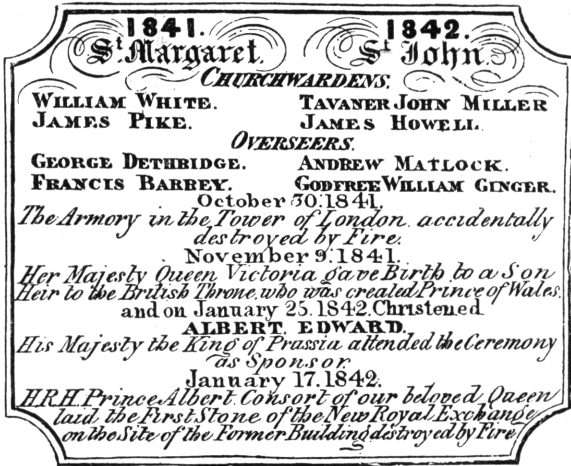 1841. 1842.
St. Margaret. St. John.
CHURCHWARDENS.
WILLIAM WHITE. TAVANER JOHN MILLER
JAMES PIKE. JAMES HOWELL.
OVERSEERS.
GEORGE DETHBIDGE. ANDREW MATLOCK.
FRANCIS BARBEY. GODFREE WILLIAM GINGER.
October 30. 1841.
The Armory in the Tower of London, accidentally
destroyed by Fire.
November 9. 1841.
Her Majesty Queen Victoria gave Birth to a Son
Heir to the British Throne, who was created Prince of Wales,
and on January 25. 1842. Christened
ALBERT EDWARD.
His Majesty the King of Prassia attended the Ceremony
as Sponsor.
January 17. 1842.
H.R.H. Prince Albert, Consort of our beloved Queen
laid the First Stone of the New Royal Exchange
on the Site of the Former Building destroyed by Fire.